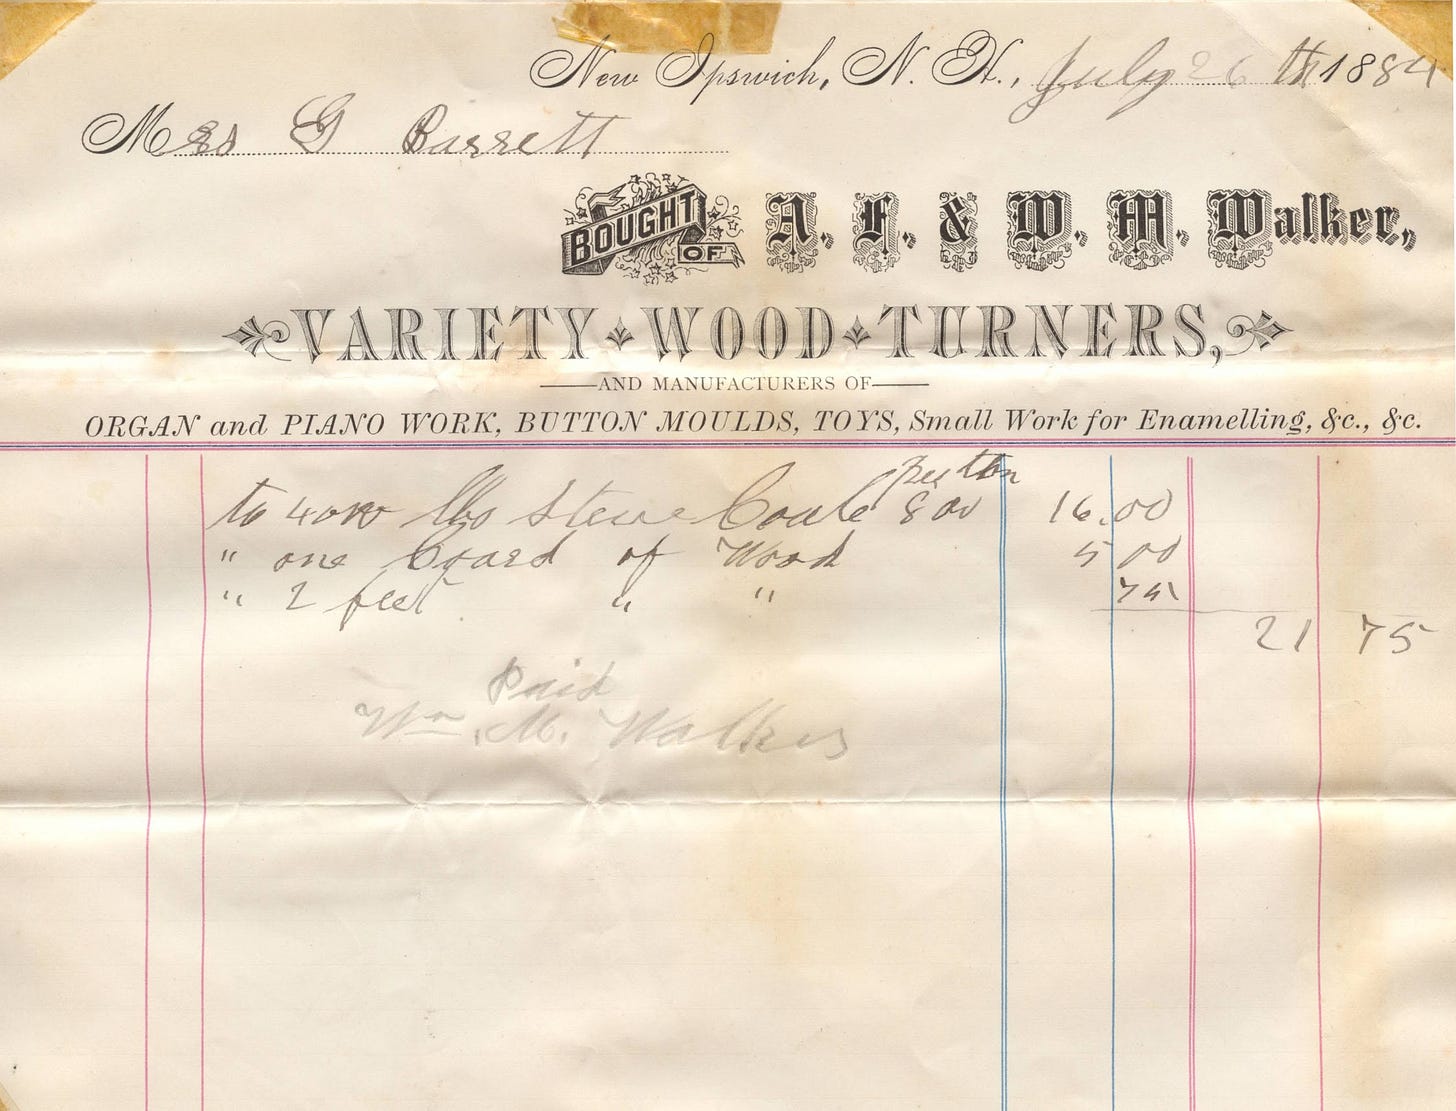 New Ipswich, N. H., July 26 th 1884
Mrs G Barrett
BOUGHT OF A. F. & W. M. Walker,
VARIETY WOOD TURNERS,
AND MANUFACTURERS OF
ORGAN and PIANO WORK, BUTTON MOULDS, TOYS, Small Work for Enamelling, &c., &c.
per ton
to 4000 lbs Stove Coal 8 00 16.00
" one Coard of Wood 5 00
" 2 feet " " 75
21 75
Paid
Wm. M. Walker